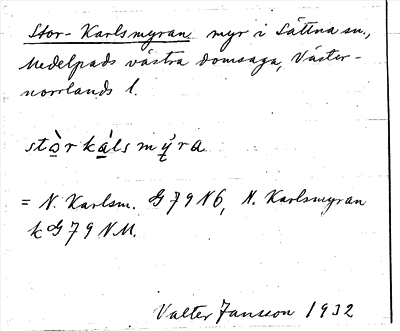 Stor-Karlsmyran myr i Sättna sn.,
Medelpads västra domsaga, Väster-
norrlands l.
stòrkàlsmy̌ra
= N. Karlsm. G79N6, N. Karlsmyran
k G79NM.
Valter Jansson 1932